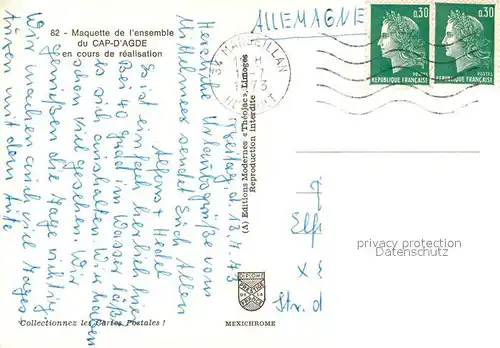 82 - Maquette de l'ensemble
du CAP-D'AGDE
en cours de réalisation
ALLEMAGNE
34 MARSEILLAN
HERAULT
0,30
POSTES
REPUBLIQUE FRANÇAISE
0,30
POSTES
REPUBLIQUE FRANÇAISE
Freitag, d. 13.
Herzliche Urlaubsgrüße vom
Mittelmeer sendet Euch Allen
Alfons + Hedel
Es ist einfach herrlich hier
Bei 40 grad im Wasser läßt
es sich aushalten. Wir haben
schon viel gesehen. Wir
genießen die Tage richtig.
Wir machen auch viel Tages-
touren mit dem Auto
(A) Editions Modernes «Théojac», Limoges
Reproduction interdite
Elf
Str. d
privacy protection
Datenschutz
DIPLOME
PRESTIGE
DE LA
FRANCE
Collectionnez les Cartes Postales !
MEXICHROME